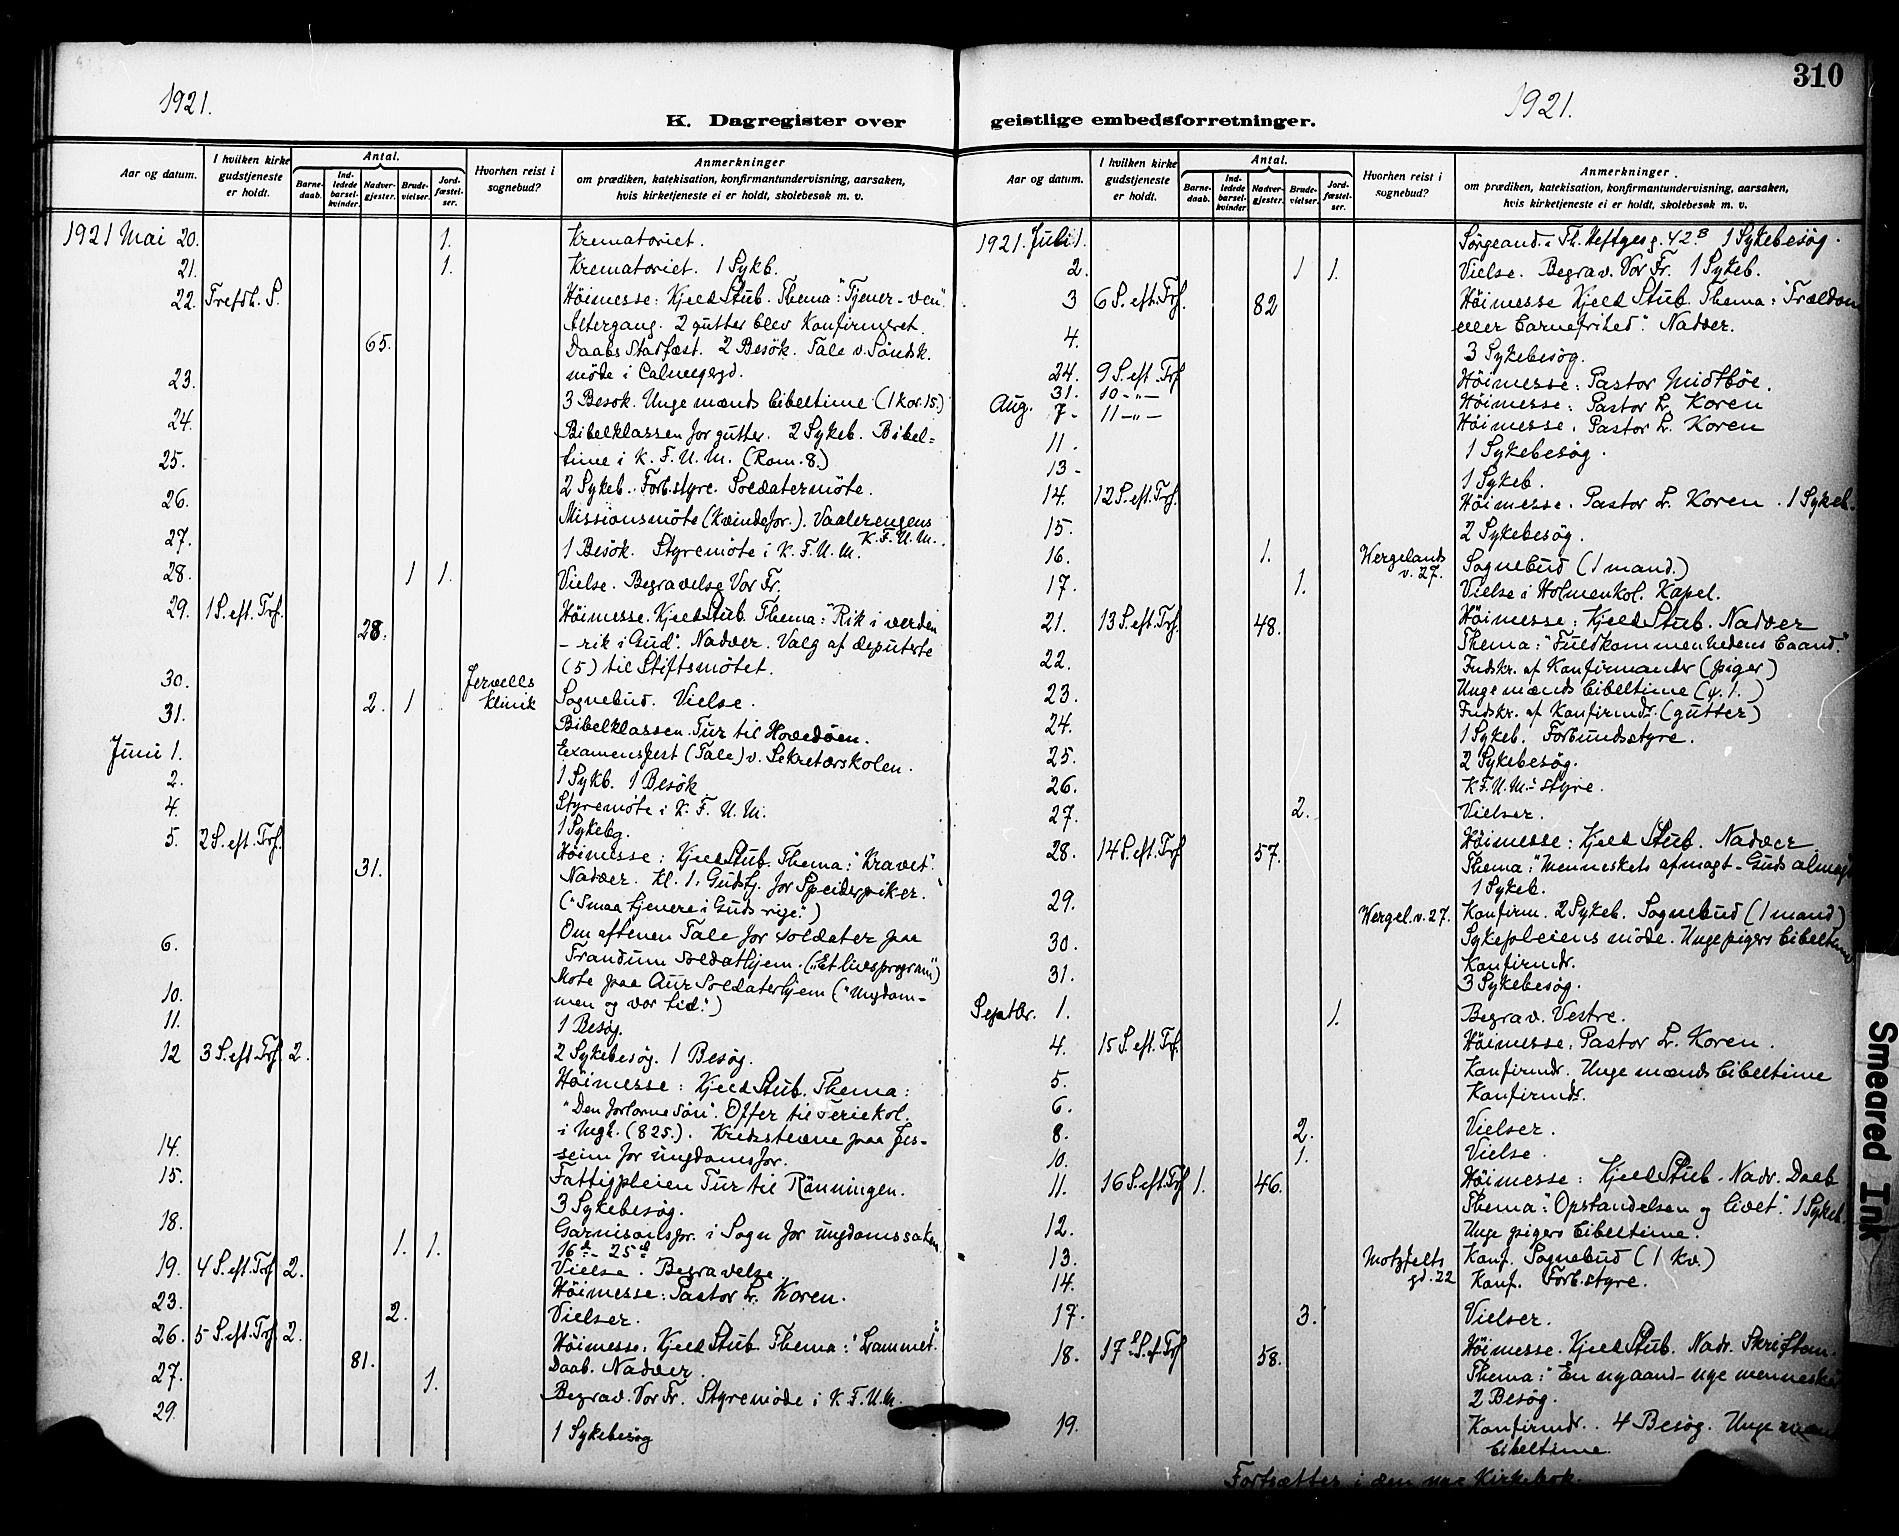 310
1921.
1921.
K. Dagregister over
geistlige embedsforretninger.
Aar og datum.
I hvilken kirke gudstjeneste er holdt.
Antal.
Barnedaab.
Indledede barselkvinder.
Nadvergjester.
Brudevielser.
Jordfæstelser.
Hvorhen reist i sognebud?
Anmerkninger
om prædiken, katekisation, konfirmantundervisning, aarsaken,
hvis kirketjeneste ei er holdt, skolebesøk m. v.
1921 Mai 20. 1. Krematoriet.
21. 1. Krematoriet. 1 Sykb.
22. Trefdh. S. Höimesse: Kjeld Stub. Thema: "Tjener - ven"
Altergang. 2 gutter blev Konfirmeret.
65. Daabs Stadfæst. 2 Besök. Tale v. Söndsk.
möde i Calmeyergd.
23. 3 Besök. Unge mænds bibeltime (1 Kor. 15.)
24. Bibelklassen for gutter. 2 Sykeb. Bibel=
time i K. F. U. M. (Rom. 8.)
25. 2 Sykeb. Forb.styre. Soldatermöte.
26. Missionsmöte (Kvindefor.). Vaalerengens K.F.U.M.
27. 1 Besök. Styremöte i K. F. U. M.
28. 1 1. Vielse. Begravelse Vor Fr.
29. 1 S. eft. Trf. Höimesse. Kjeld Stub. Thema: "Rik i verden
28. - rik i Gud". Nadver. Valg af deputerte
(5) til Stiftsmötet.
30. 2. 1 Jervells klinik Sognebud. Vielse.
31. Bibelklassen. Tur til Hovedöen.
Juni 1. Examensfest (Tale) v. Sekretærskolen.
2. 1 Sykb. 1 Besök
4. Styremöte i K. F. U. M.
1 Sykebg.
5. 2 S. eft. Trf. Höimesse: Kjeld Stub. Thema: "Kravet".
31. Nadver. Kl. 1. Gudstj. for Speiderpiker.
("Smaa tjenere i Guds rige.")
Om aftenen Tale for soldater paa
6. Trandum Soldathjem. ("Et livsprogram")
Möte paa Aur Soldaterhjem ("Ungdom-
10. men og vor tid.")
11. 1 Besög.
12 3 S. eft. Trf. 2. 2 Sykebesög. 1 Besög.
Höimesse: Kjeld Stub. Thema:
"Den fortorne sön". Offer til Feriekol.
i Mgh. (825.). Kredsstevne paa Jes-
14. seim for ungdomsfor.
15. Fattigpleien Tur til Rönningen.
3 Sykebesög.
18. Garnisonsfor. i Sogn for ungdomssaken
1. 1. 16de - 25de
19. 4 S. eft. Trf. 2. Vielse. Begravelse.
Höimesse: Pastor Lr. Koren.
23. 2. Vielser.
26. 5 S. eft. Trf. 2. Höimesse: Kjeld Stub. Thema: "Lammet."
81. Daab. Nadver.
27. 1. Begrav. Vor Fr. Styremöde i K. F. U. M.
29. 1 Sykebesög
Aar og datum.
I hvilken kirke gudstjeneste er holdt.
Antal.
Barnedaab.
Indledede barselkvinder
Nadvergjester.
Brudevielser.
Jordfæstelser.
Hvorhen reist i sognebud?
Anmerkninger.
om prædiken, katekisation, konfirmantundervisning, aarsaken,
hvis kirketjeneste ei er holdt, skolebesøk m. v.
1921. Juli 1. Sörgeand. i Th. Heftyesg. 42.B 1 Sykebesög.
2. 1 1. Vielse. Begrav. Vor Fr. 1 Sykeb.
3 6 S. eft. Trf. 82 Höimesse Kjeld Stub. Thema: "Trældom
eller barnefrihed". Nadver.
4. 3 Sykebesög.
24. 9 S. eft. Trf Höimesse: Pastor Midtböe.
31. 10 -"- Höimesse: Pastor Lr. Koren
Aug. 7 - 11 -"- Höimesse: Pastor Lr. Koren
11. 1 Sykebesög.
13 - 1 Sykeb.
14. 12 S. eft. Trf. Höimesse: Pastor Lr. Koren. 1 Sykeb.
15. 2 Sykebesög.
16. 1. Wergelands v. 27. Sognebud (1 mand.)
17. 1. Vielse i Holmenkol. Kapel.
21. 13 S. eft. Trf. 48. Höimesse: Kjeld Stub. Nadver
Thema: "Fuldkommenhedens baand."
22. Indskr. af Konfirmander (piger)
Unge mænds bibeltime (
23. Indskr. af Konfirmdr. (gutter)
24. 1 Sykeb. Forbundsstyre.
25. 2 Sykebesög.
26. K.F.U.M.-styre.
27. 2. Vielser.
28. 14 S. eft. Trf 57. Höimesse: Kjeld Stub. Nadver
Thema: "Menneskets afmagt - Guds almagt
1 Sykeb.
29. Wergel. v. 27. Konfirm. 2 Sykeb. Sognebud (1 mand)
30. Sykepleiens möde. Unge pigers bibeltime
Konfirmdr.
31. 3 Sykebesög.
Septbr. 1. 1. Begrav. Vestre.
4. 15 S. eft. Trf. Höimesse: Pastor Lr. Koren.
5. Konfirmdr. Unge mænds bibeltime
6. Konfirmdr.
8. 2. Vielser.
10. 1. Vielse.
11. 16 S. eft. Trf 1. 46. Höimesse: Kjeld Stub. Nadv. Daab
Thema: "Opstandelsen og livet". 1 Sykeb.
12. Unge pigers bibeltime.
13. Motzfelts gd. 22 Konf. Sognebud (1 Kv.)
14. Konf. Forb.styre.
17. 3. Vielser.
18. 17 S. ef. Trf 58. Höimesse. Kjeld Stub. Nadv. Skriftem.
Thema: "En ny aand - nye mennesker
2 Besög.
19. Konfirmdr. 4 Besög. Unge mænds
bibeltime.
Fortsættes i den nye Kirkebok.
Smeared Ink